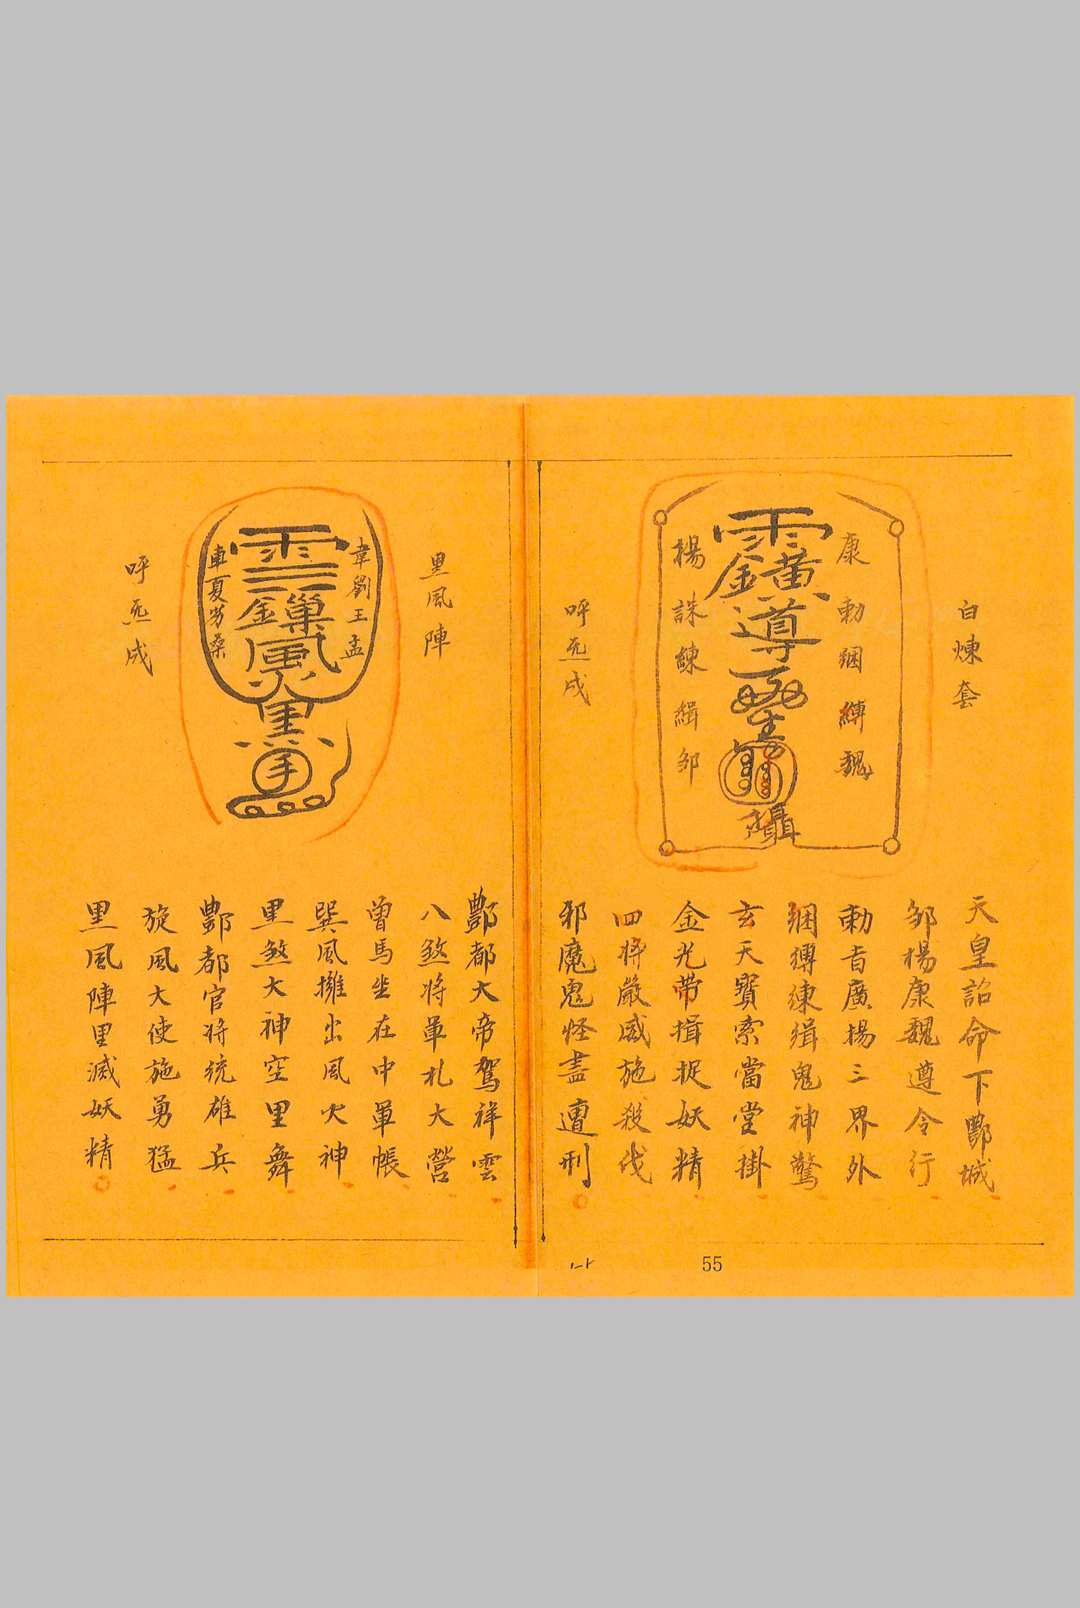 白煉套
康勅綑縛魏
楊誅練緝邹
呼炁成
天皇詔命下酆城
邹楊康魏遵令行
勅旨廣揚三界外
綑縛練緝鬼神驚
玄天寶索當堂掛
金光带揖捉妖精
四将嚴威施殺伐
邪魔鬼怪盡遭刑
55
黒風陣
韋劉王孟
車夏劳桑
呼炁成
酆都大帝駕祥雲
八煞将軍札大營
曾馬坐在中軍帳
巽風擁出風火神
黒煞大神空里舞
酆都官将統雄兵
旋風大使施勇猛
黒風陣里滅妖精